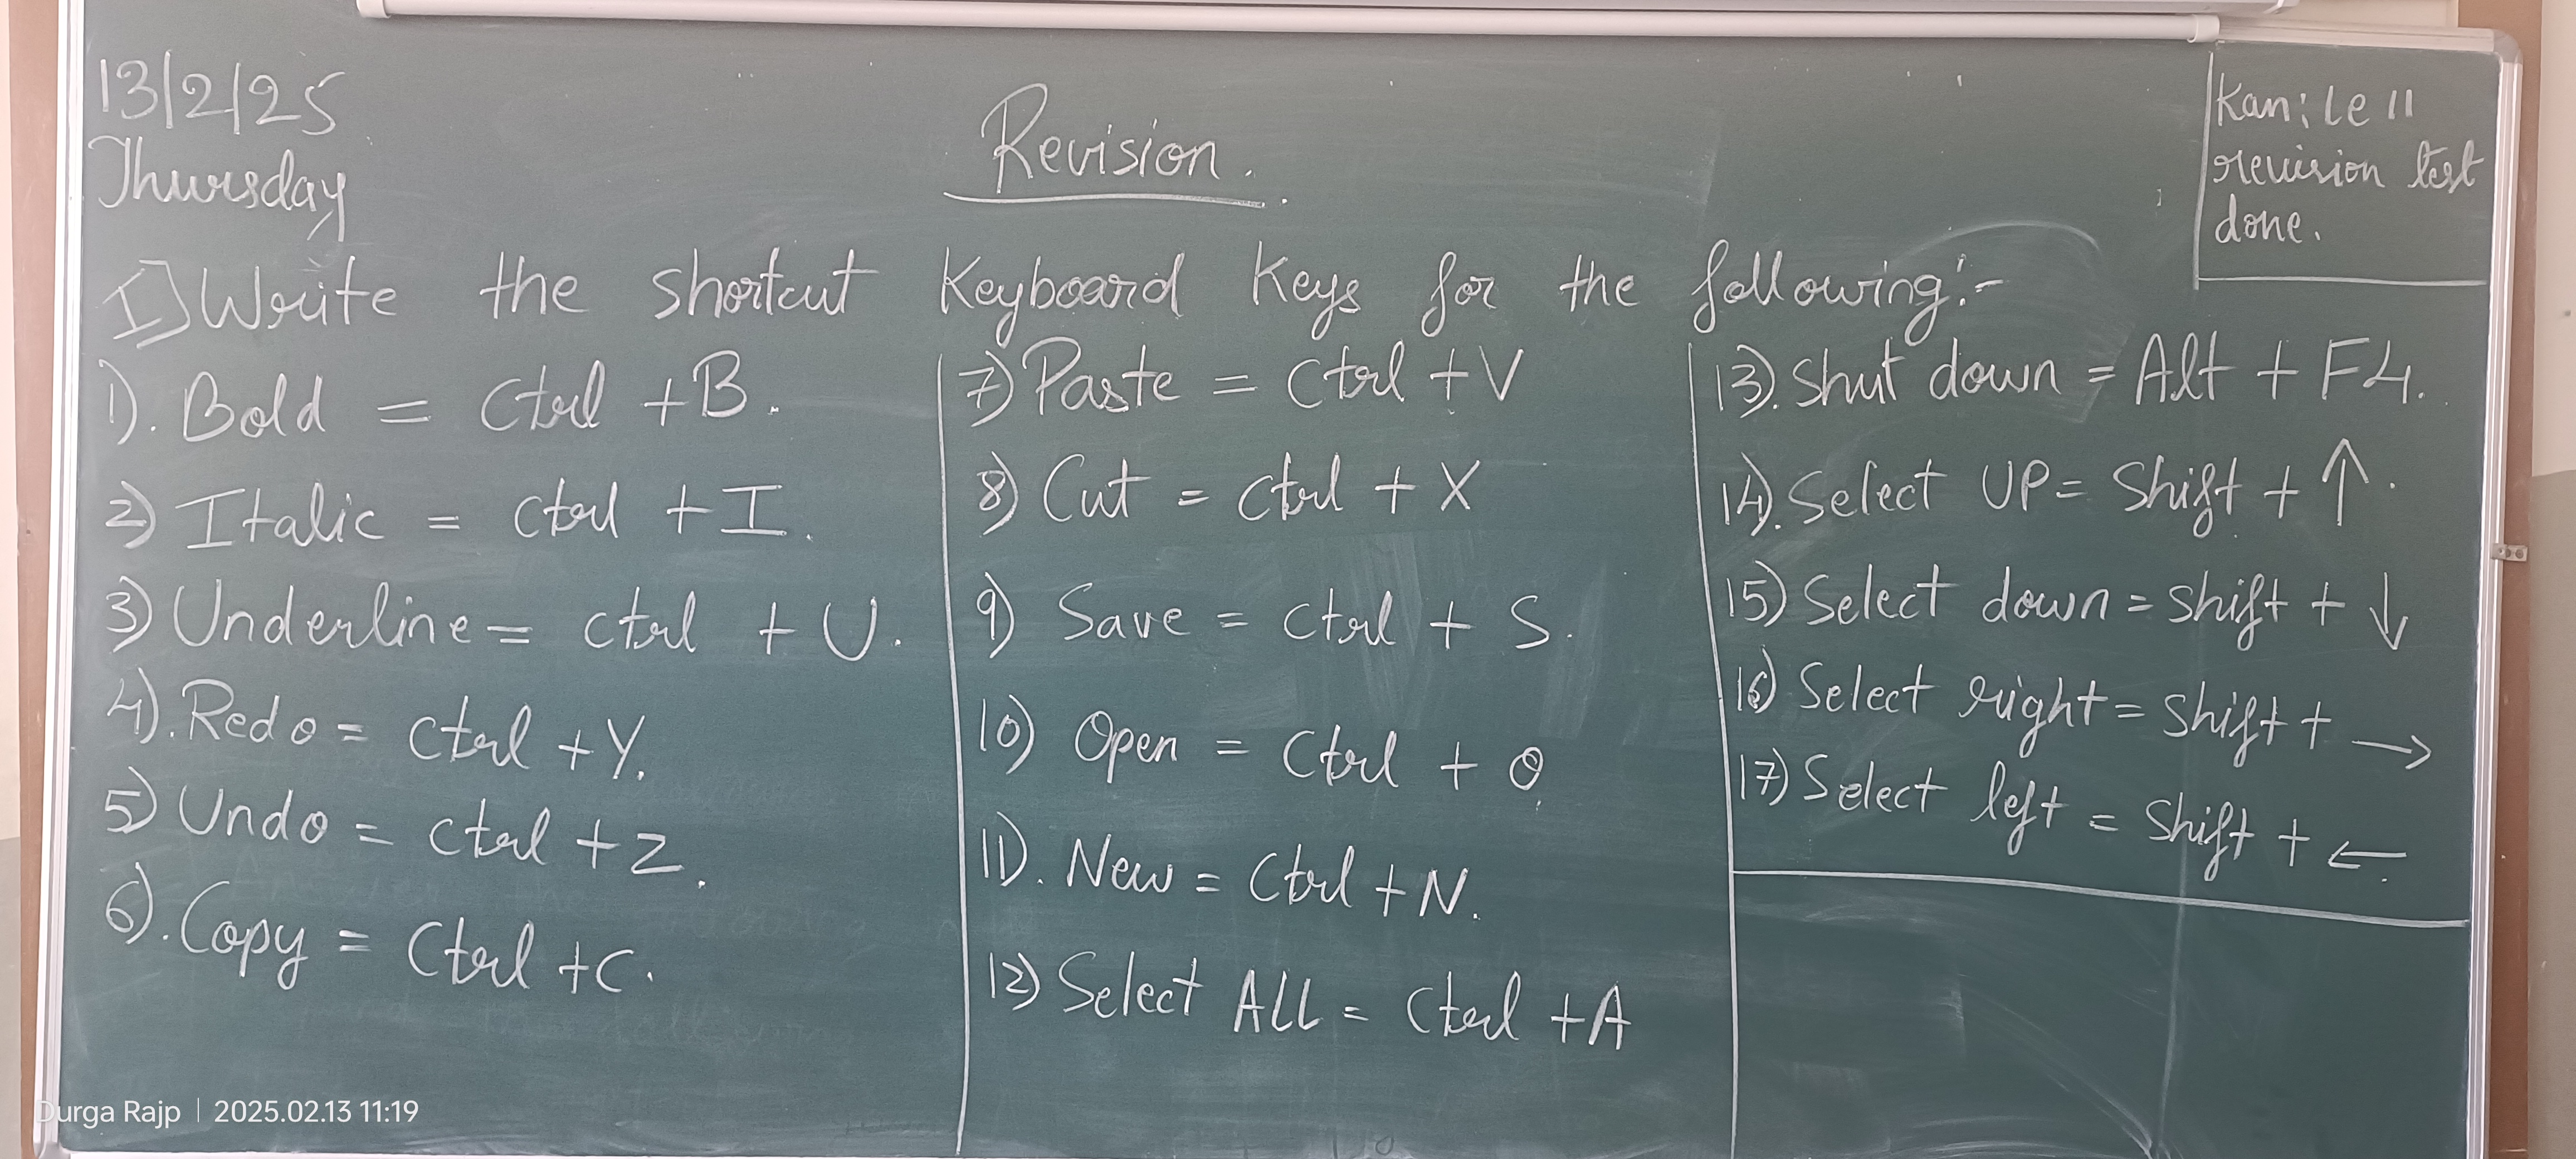 13/2/25
Thursday
Revision.
Kan: Le 11
revision test
done.
I) Write the shortcut Keyboard Keys for the following:-
1). Bold = Ctrl + B.
2) Italic = Ctrl + I.
3) Underline = Ctrl + U.
4). Redo = Ctrl + Y.
5) Undo = Ctrl + Z.
6). Copy = Ctrl + C.
7) Paste = Ctrl + V
8) Cut = Ctrl + X
9) Save = Ctrl + S.
10) Open = Ctrl + O.
11). New = Ctrl + N.
12) Select ALL = Ctrl + A
13). Shut down = Alt + F4.
14). Select UP = Shift + ↑.
15) Select down = Shift + ↓
16) Select right = Shift + →
17) Select left = Shift + ←.
Durga Rajp | 2025.02.13 11:19